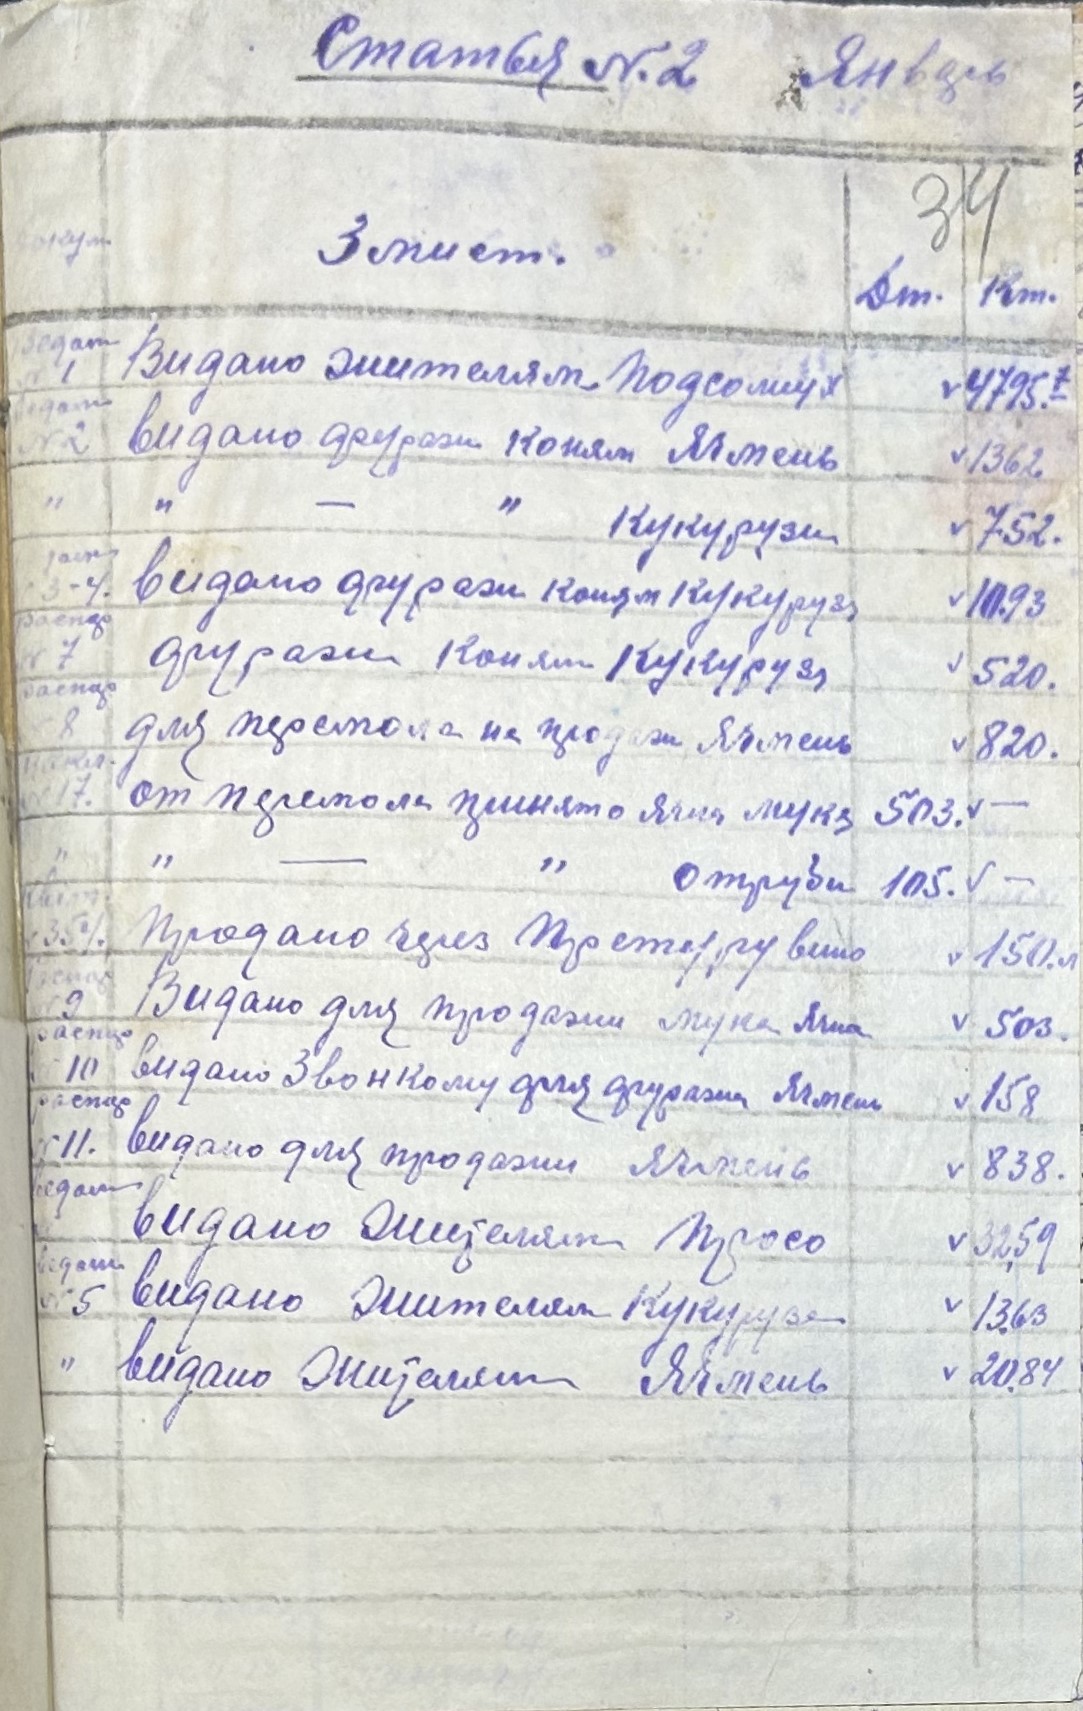 Статья N.2 Январь
34
докум Змист. Дт. Кт.
Ведом
N 1 Видано жителям Подсолнух v 4795.7
ведом
N 2 видано фуражи коням Ячмень v 1362
" " — " Кукурузи v 752.
3-4. видано фуражи коням Кукуруза v 1093
распор
N 7 фуражи коням Кукуруза v 520.
распор
N 8 для перемола на продажи Ячмень v 820.
накл.
N 17. от перемола принято ячна мука 503. v —
" " — " отруби 105. v —
Квит.
35 Продано через вино v 150.л
распор
N 9 Видано для продажи мука ячна v 503.
распор
N 10 видано Звонкому для фуража Ячмень v 158
распор
N 11. видано для продажи Ячмень v 838.
ведом
видано жителям Просо v 3259
ведом
N 5 видано жителям Кукуруза v 1363
" видано жителям Ячмень v 2084